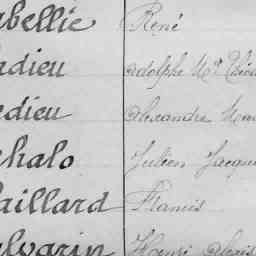 abellie René
adieu Adolphe
edieu Alexandre
chalo Julien Jacque
aillard Francis
alvarin Henri Alexis